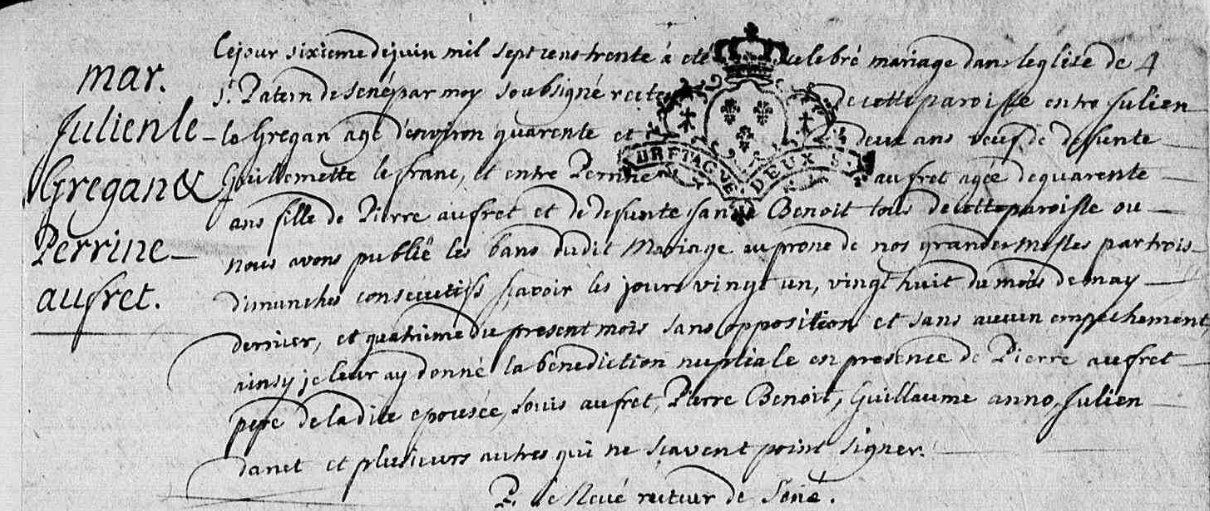 mar.
Julien le
Gregan &
Perrine
aufret.
Ce jour sixieme de juin mil sept cens trente à eté celebré mariage dans leglise de
St. Patern de sené par moy soubsigné recteur de cette paroisse entre Julien
le Gregan agé denviron quarente et deux ans veuf de defunte
Guillemette le franc, et entre Perrine aufret agée de quarente
ans fille de Pierre aufret et de defunte Benoit tous de cette paroisse ou
nous avons publié les bans dudit Mariage au prone de nos grandes messes par trois
dimanches consecutifs scavoir les jours vingt un, vingt huit du mois de may
dernier, et quatrieme du present mois sans opposition et sans aucun empechement,
ainsy je leur ay donné la benediction nuptiale en presence de Pierre aufret
pere de la dite epousée, Louis aufret, Pierre Benoit, Guillaume anno, Julien
danet et plusieurs autres qui ne scavent point signer.
P. recteur de Sené.
BRETAGNE DEUX S